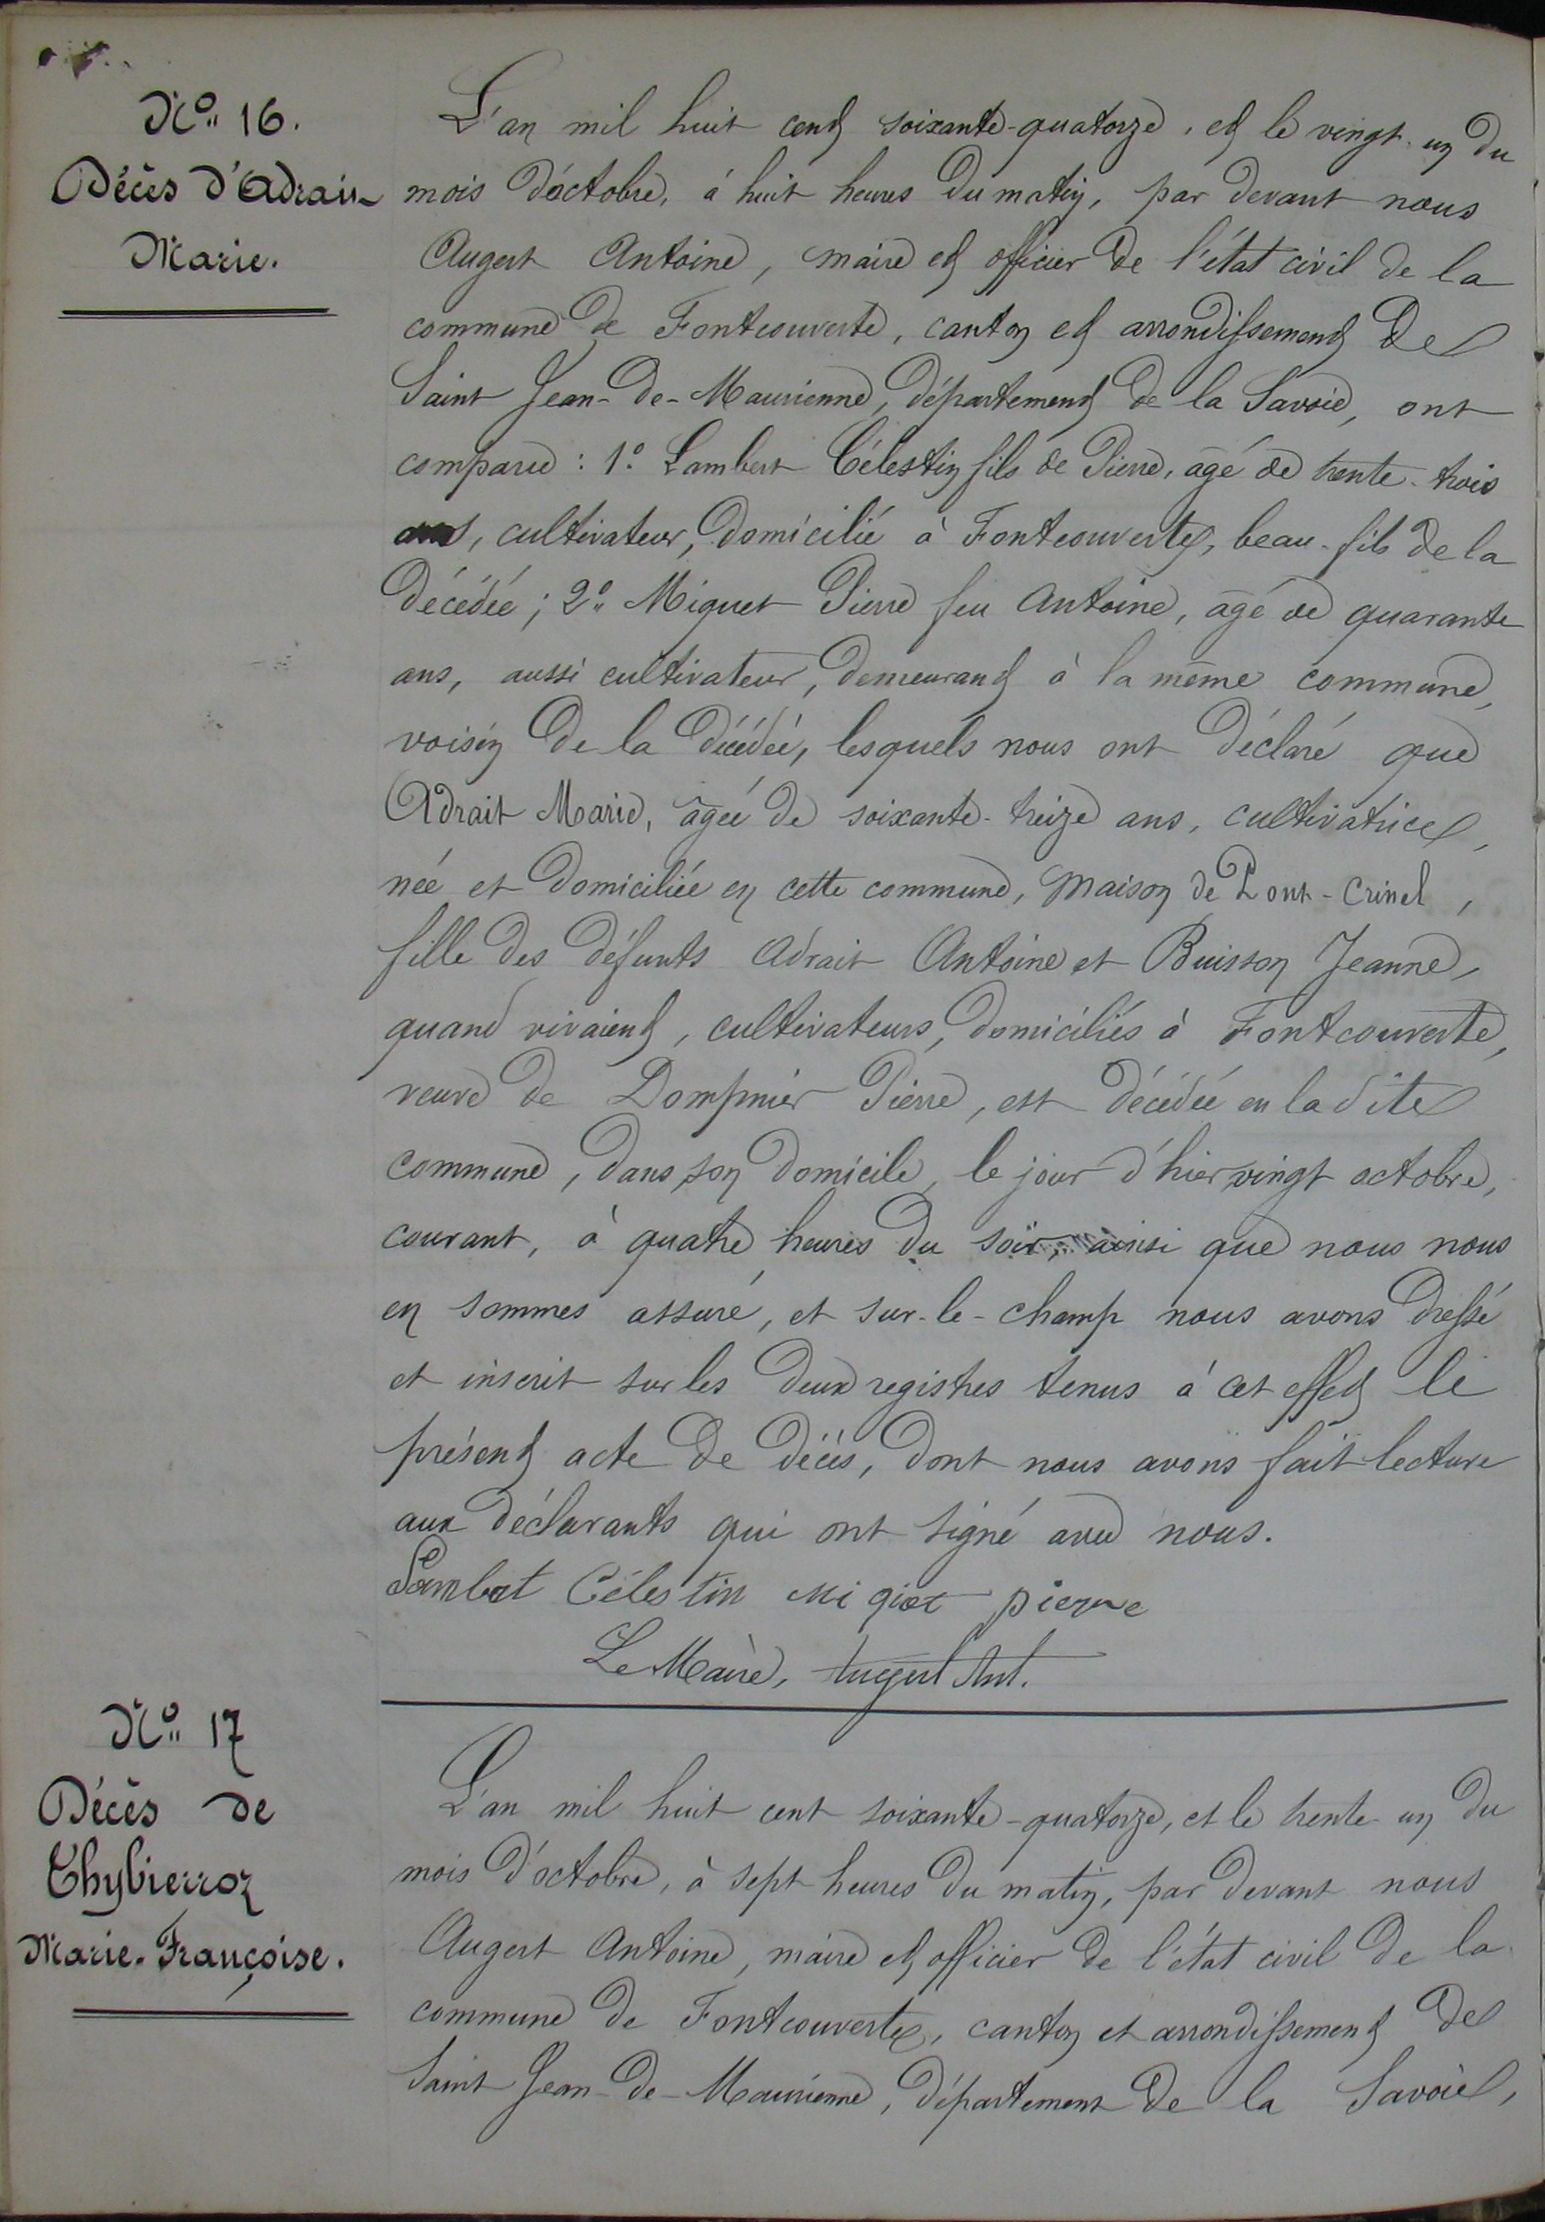 N° 16.
Décès d'Adrait
Marie.
L'an mil huit cent soixante-quatorze, et le vingt-un du
mois d'octobre, à huit heures du matin, par devant nous
Augert Antoine, maire et officier de l'état civil de la
commune de Fontcouverte, canton et arrondissement de
Saint Jean-de-Maurienne, département de la Savoie, ont
comparu : 1° Lambert Célestin fils de Pierre, âgé de trente-trois
ans, cultivateur, domicilié à Fontcouverte, beau-fils de la
décédée ; 2° Miquet Pierre feu Antoine, âgé de quarante
ans, aussi cultivateur, demeurant à la même commune,
voisin de la décédée, lesquels nous ont déclaré que
Adrait Marie, âgée de soixante-treize ans, cultivatrice,
née et domiciliée en cette commune, maison de Pont-Crinel,
fille des défunts Adrait Antoine et Buisson Jeanne,
quand vivaient, cultivateurs, domiciliés à Fontcouverte,
veuve de Dompnier Pierre, est décédée en la dite
commune, dans son domicile, le jour d'hier vingt octobre,
courant, à quatre heures du soir, ainsi que nous nous
en sommes assuré, et sur-le-champ nous avons dressé
et inscrit sur les deux registres tenus à cet effet le
présent acte de décès, dont nous avons fait lecture
aux déclarants qui ont signé avec nous.
Lambert Célestin Miqiet pierre
Le Maire, Augert Ant.
N° 17
Décès de
Thybierroz
Marie-Françoise.
L'an mil huit cent soixante-quatorze, et le trente-un du
mois d'octobre, à sept heures du matin, par devant nous
Augert Antoine, maire et officier de l'état civil de la
commune de Fontcouverte, canton et arrondissement de
Saint Jean-de-Maurienne, département de la Savoie,